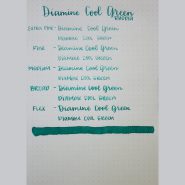 Diamine Cool Green
EXTRA FINE - Diamine Cool Green
DIAMINE COOL GREEN
FINE - Diamine Cool Green
DIAMINE COOL GREEN
MEDIUM - Diamine Cool Green
DIAMINE COOL GREEN
BROAD - Diamine Cool Green
DIAMINE COOL GREEN
FLEX - Diamine Cool Green
DIAMINE COOL GREEN